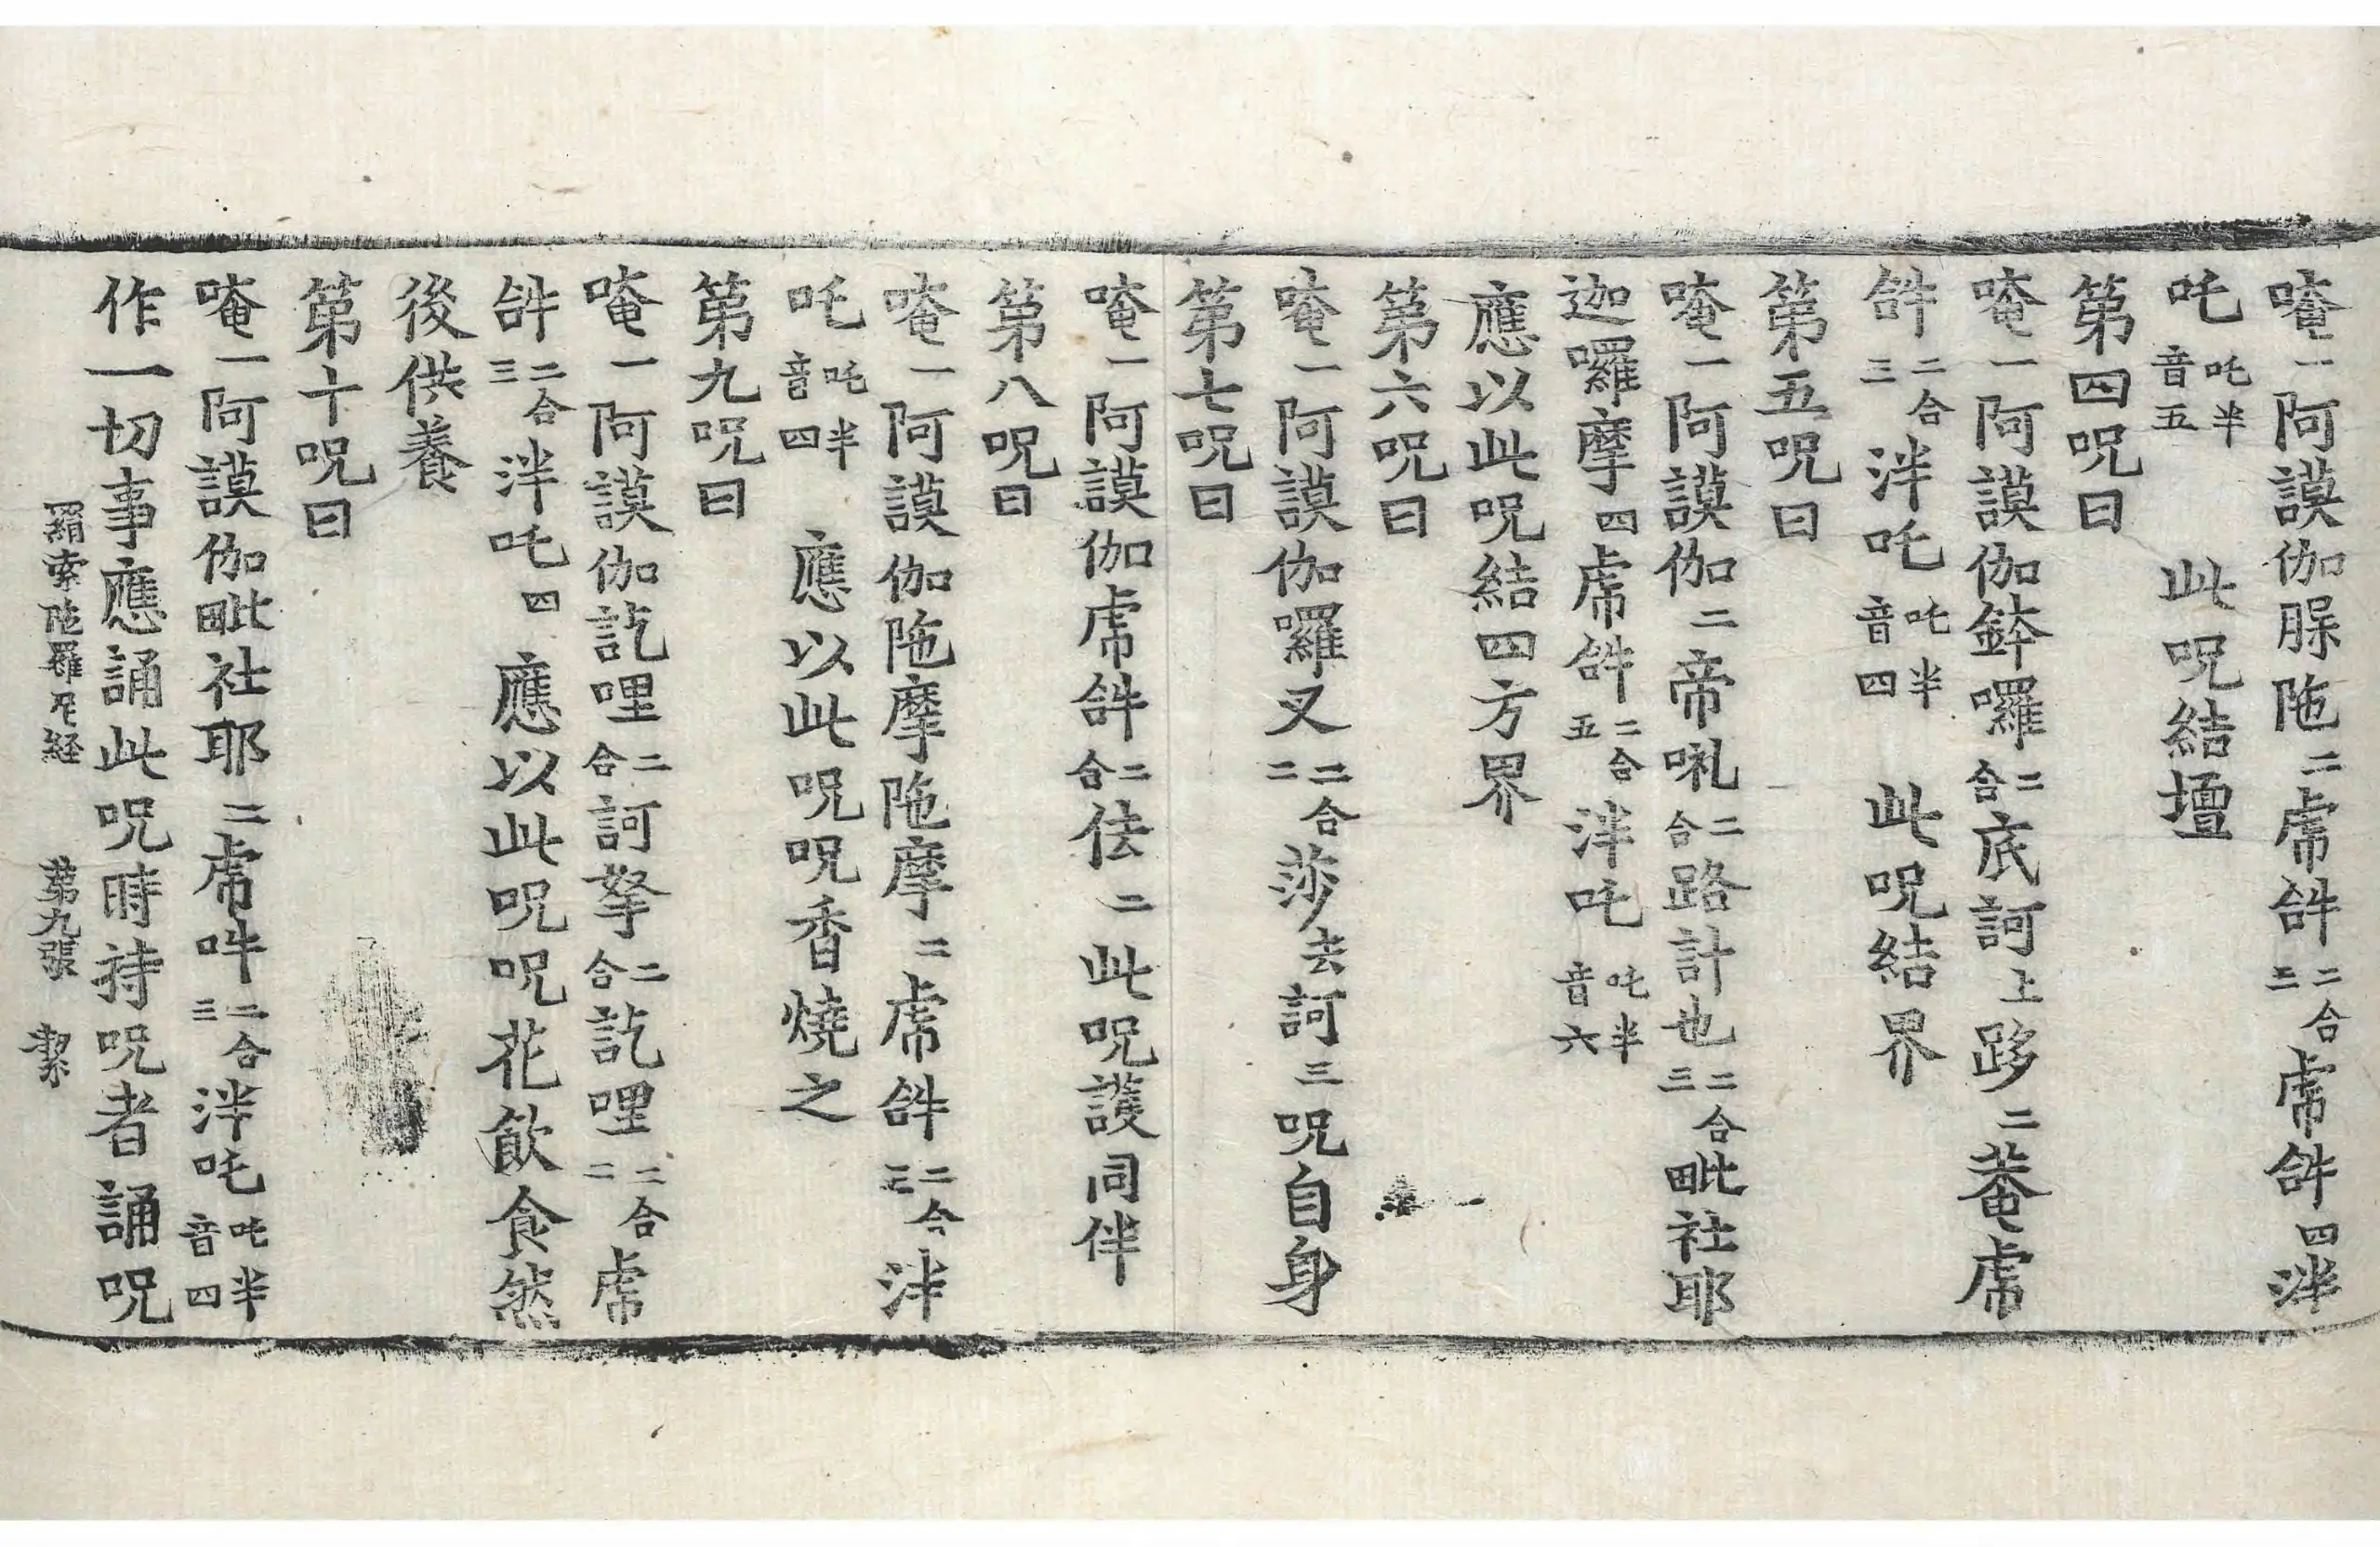 唵一阿謨伽脲陁二虎𤙖二合三虎𤙖四泮
吒吒半音五 此呪結壇
第四呪曰
唵一阿謨伽鉢囉二合底訶上跢二菴虎
𤙖二合三泮吒吒半音四 此呪結界
第五呪曰
唵一阿謨伽二帝二合路計也二合三毗社耶
迦囉摩四虎𤙖二合五泮吒吒半音六
應以此呪結四方界
第六呪曰
唵一阿謨伽囉叉二合二莎去訶三呪自身
第七呪曰
唵一阿謨伽虎𤙖二合佉二此呪護同伴
第八呪曰
唵一阿謨伽陁摩陁摩二虎𤙖二合三泮
吒吒半音四 應以此呪呪香燒之
第九呪曰
唵一阿謨伽訖哩二合訶拏二合訖哩二合二虎
𤙖二合三泮吒四 應以此呪呪花飲食然
後供養
第十呪曰
唵一阿謨伽毗社耶二虎吽二合三泮吒吒半音四
作一切事應誦此呪時持呪者誦呪
羂索陁羅尼経 第九張 潔